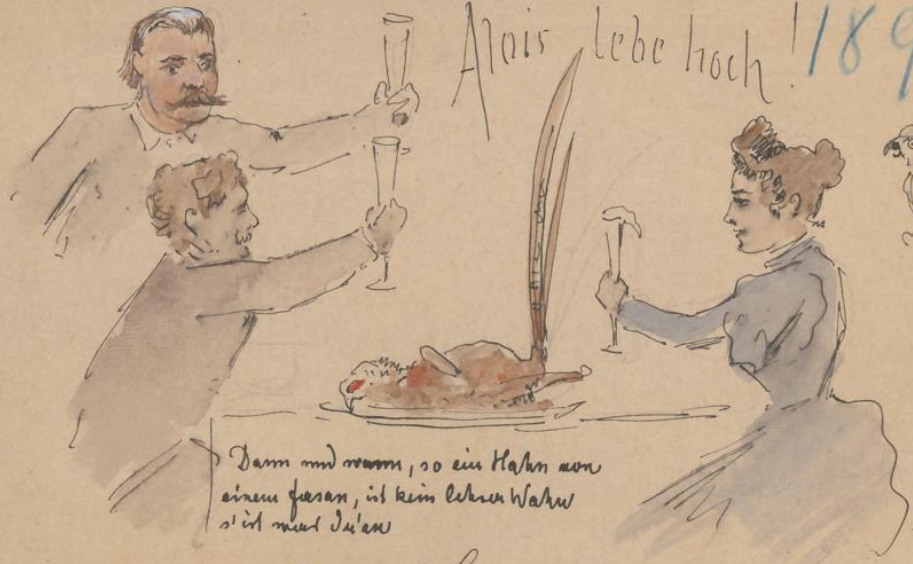 Alois lebe hoch! 189
Dann und wann, so ein Hahn von
einem Fasan, ist kein leerer Wahn
s'ist was d'ran